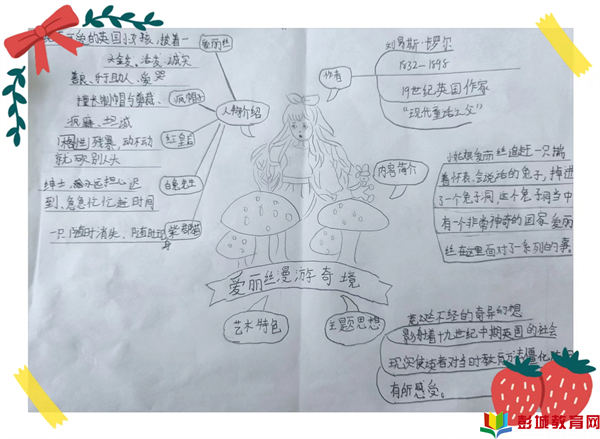 爱丽丝
的英国小女孩,披着一
活发,诚实
善良、乐于助人、爱哭
疯帽子
擅长制帽与剪裁、
疯癫、坦诚
红皇后
残暴 动不动
就砍别人头
白兔先生
绅士,总永远担心迟
到,急急忙忙赶时间
柴郡猫
一只随时消失、随时出现
身
人物介绍
作者
刘易斯·卡罗尔
1832—1898
19世纪英国作家
“现代童话之父”
内容简介
小姑娘爱丽丝追赶一只揣
着怀表、会说话的兔子,掉进
了个兔子洞,这个兔子洞当中
有一个非常神奇的国家,爱丽
丝在这里面对了一系列的事。
爱丽丝漫游奇境
艺术特色
主题思想
荒诞不经的奇异幻想
影射着十九世纪中期英国的社会
现况使读者对当时教育方法僵化
有所感受。
彭城教育网